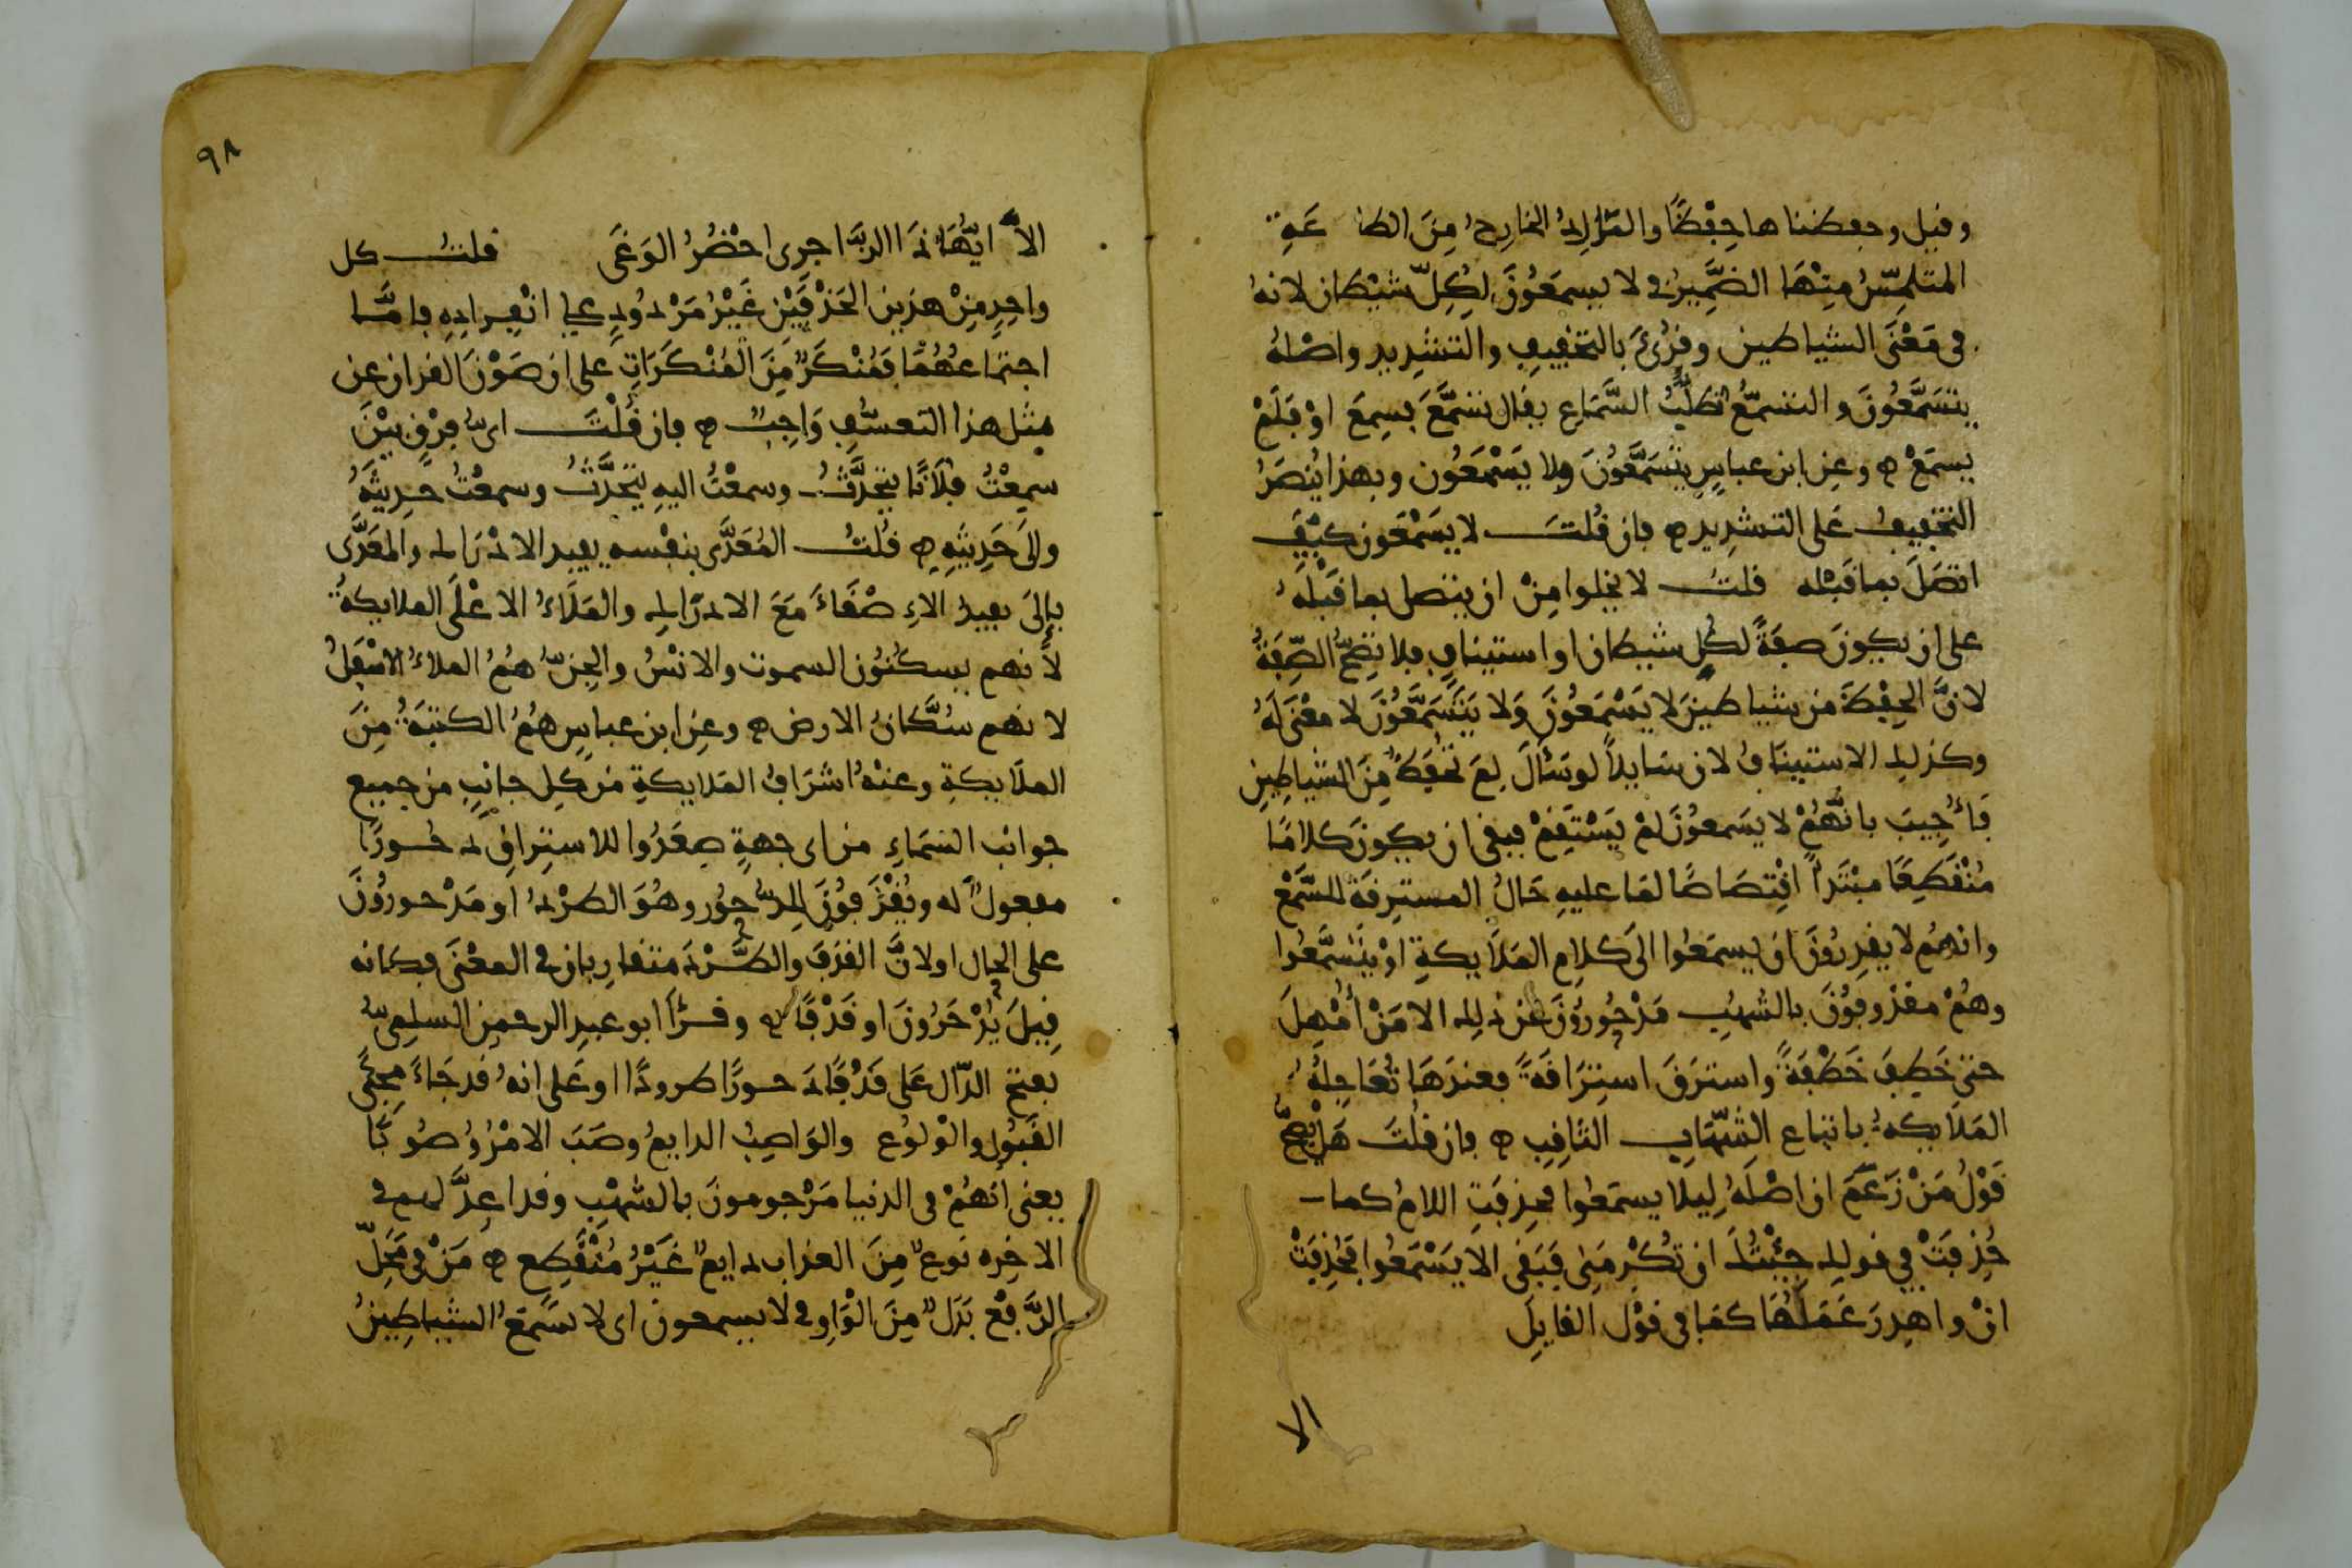 وقيل وحفظناها حِفْظًا والمَارِدُ الخارِجُ مِنَ الطاعَةِ
المتلمِّسُ مِنْهَا الضَّمِيرُ في لا يسمَعُونَ لِكُلِّ شيْطان لانهُ
في مَعْنَى الشياطين وقُرِئَ بالتخفِيفِ والتشْدِيدِ واصْلهُ
يتسَمَّعُونَ والتسمُّعُ تطَلُّبُ السَّمَاعِ يقال تسَمَّعَ فسِمِعَ اوْ فَلَمْ
يسمَعْ وعن ابن عباسٍ يتَسَمَّعُونَ ولا يَسْمَعُون وبهذا يُنصَرُ
التخفِيفُ عَلى التشدِيدِ فان قُلتَ لا يَسْمَعُون كيْفَ
اتصَلَ بما قَبْله قلتُ لا يخلوا مِنْ ان يتصل بما قَبْلَهُ
على ان يكونَ صِفَةً لكُلِ شيطان او استينافٍ فلا تصِحُّ الصِّفَةُ
لانَّ الحِفْظَ من شياطينَ لا يَسْمَعُونَ وَلا يَتَسَمَّعُونَ لا معْنَى لَهُ
وكذلك الاستينَافُ لان سَايلاً لو سَأَلَ لِمَ تُحْفَظُ مِنَ الشياطِينِ
فَأُجِيبَ بانَّهُمْ لا يَسْمعُونَ لَمْ يَسْتَقِمْ فبقى ان يكونَ كلامًا
مُنْقَطِعًا مبْتَدأً اقْتِصَاصًا لمَا عليهِ حَالُ المسترِقَة للسَّمْع
وانهُم لا يقدِرُونَ ان يسمَعُوا الىَ كلامِ المَلَايكةِ اوْ يَتَسَّمَّعُوا
وهُمْ مقذوفُونَ بالشُّهُبِ مَدْحُورُونَ عن ذلِك الا مَنْ أُمْهِلَ
حتى خَطِفَ خَطْفَةً واسترَقَ اسْتِرَاقَةً فعندَهَا تُعَاجِلُهُ
المَلَايكةُ باتباع الشِّهَابِ الثَاقِبِ فان قُلْتَ هَلْ يصِحُّ
قَوْلُ مَنْ زَعَمَ ان اصْلَهُ لِيلا يسمَعُوا فحِذِفَتِ اللامُ كما
حُذِفَتْ في قولِك جِئْتُكَ ان تُكْرِمَنِي فَبَقى الا يَسْمَعُوا فَحُذِفَتْ
انْ واهدِرَ عَمَلُهَا كمَا في قوْل القايِلِ
الا
٩٨
الاَ ايُّهَا ذَا الزَّاجرى احْضُرُ الوَغَى قلتُ كل
واحِدٍ مِنْ هذين الحَذْفَيْنِ غَيْرُ مَرْدُودٍ على انْفِرادِهِ فامَّا
اجتمَاعهُمَا فَمُنْكَرٌ مِنَ المُنْكَرَاتِ على ان صَوْنَ القران عن
مثل هذا التعسُّفِ وَاجِبٌ فان قُلْتَ اىُّ فرْقٍ بيْنَ
سمِعْتُ فلَانًا يتحَدَّثُ وسمعْتُ اليهِ يتحَدَّثُ وسمعْتُ حدِيثَهُ
والىَ حَدِيثِهِ قُلتُ المُعَدَّى بنفْسه يفيد الادْرَاك والمُعَدَّى
بإلىَ يفِيدُ الاِصْغَاءَ مَعَ الادرَاكِ والمَلَاءُ الاعْلَى الملايكةُ
لانهم يسكُنُون السموت والانسُ والجِنُّ هُمُ الملاءُ الاسْفَلُ
لانهم سُكَّانُ الارض وعن ابن عباسٍ هُمُ الكتبَةُ مِنَ
الملَايكةِ وعنهُ اشرَافُ المَلايكةِ من كل جانِبٍ من جميع
جوانب السَّمَاءِ من اى جهةٍ صعَدُوا للاستِراقِ دحُورًا
مفعولٌ له ويُقْذَفُونَ لِلدُّحُور وهُوَ الطرْدُ او مَدْحورُونَ
على الحِال او لانَّ القذفَ والطَّرْدَ متقارِبان في المعْنَى فكانه
قِيلَ يُدْحَرُونَ او قَذْفًا وقرَأ ابو عبد الرحمن السلمىُّ
بفتح الدّال عَلى قَذْفًا دَحورًا طرودًا او عَلى انهُ قد جَاءَ مجىَّ
القَبُولِ والوَلُوع والوَاصِبُ الدايمُ وصَبَ الامْرُ وُصُوبًا
يعنى انهُمْ في الدنيا مَرْجومونَ بالشُهْبِ وقد اعِدَّ لهم في
الاخِره نوعٌ مِنَ العذاب دايمٌ غَيْرُ مُنْقَطِعٍ مَنْ في مَحَلِّ
الرَّفْع بَدَلٌ مِنَ الْوَاوِ في لا يسمعون اى لا يَسْمَعُ الشياطِينُ